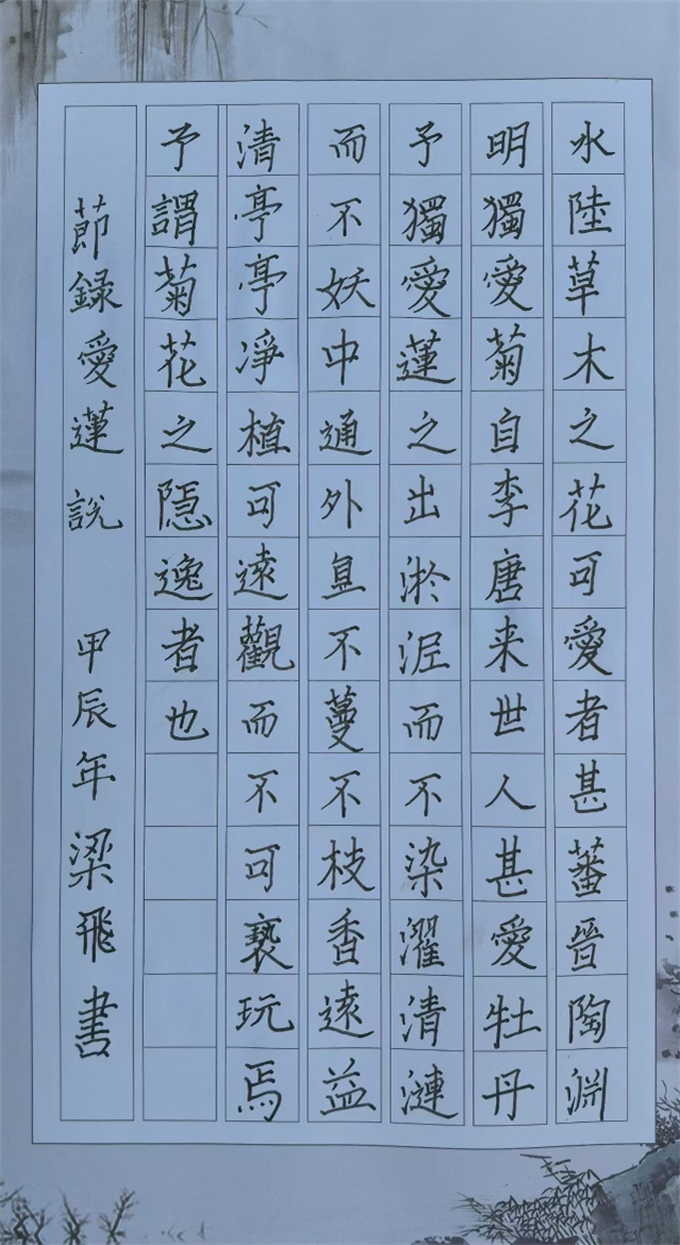 水陸草木之花可愛者甚蕃晉陶淵
明獨愛菊自李唐来世人甚愛牡丹
予獨愛蓮之出淤泥而不染濯清漣
而不妖中通外直不蔓不枝香遠益
清亭亭凈植可遠觀而不可褻玩焉
予謂菊花之隱逸者也
莭録愛蓮說 甲辰年梁飛書